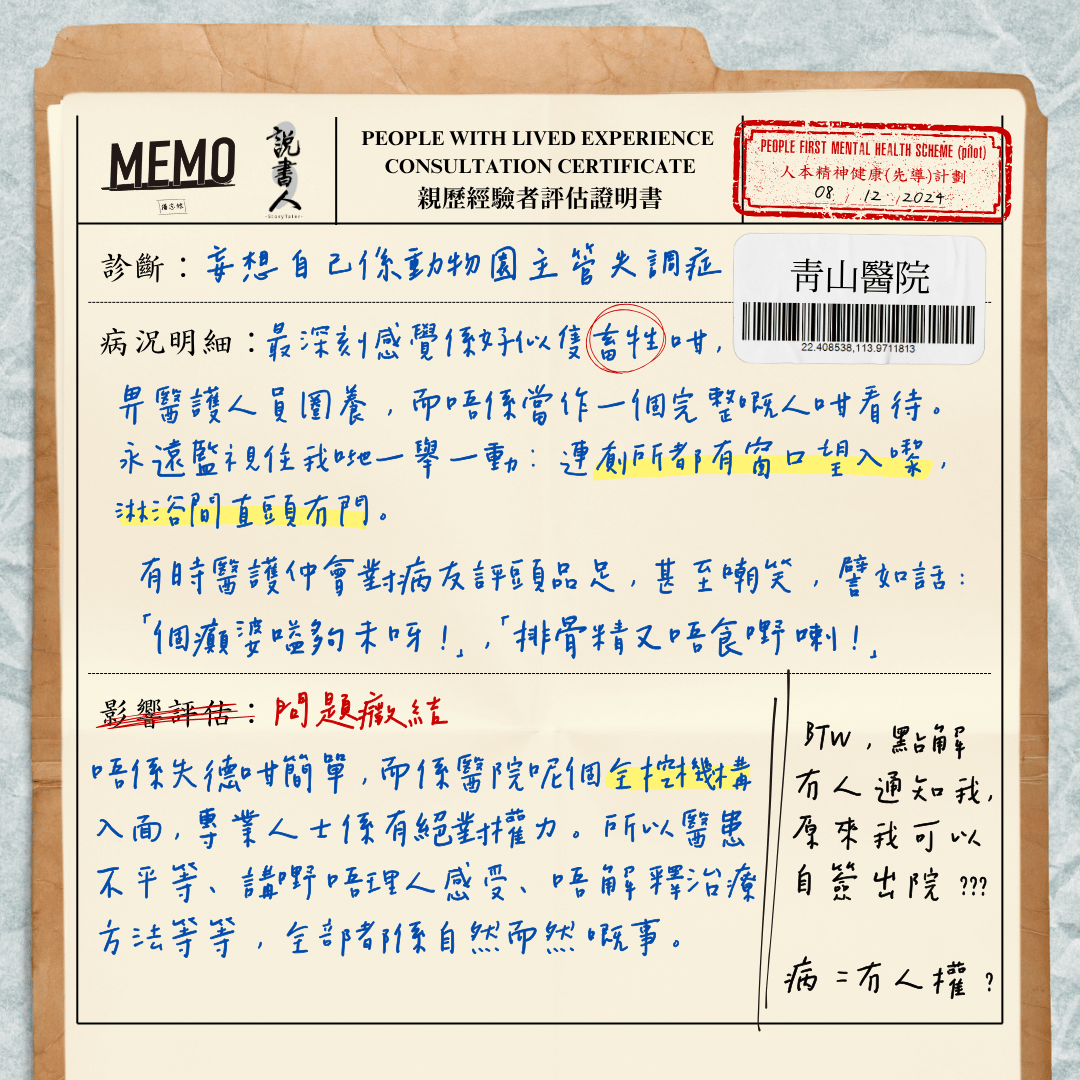 MEMO
說書人
-Storytaler-
PEOPLE WITH LIVED EXPERIENCE
CONSULTATION CERTIFICATE
親歷經驗者評估證明書
PEOPLE FIRST MENTAL HEALTH SCHEME (pilot)
人本精神健康(先導)計劃
08 / 12 / 2024
診斷：妄想自己係動物園主管失調症
青山醫院
22.408538,113.9711813
病況明細：最深刻感覺係好似隻畜牲咁，
畀醫護人員圈養，而唔係當作一個完整嘅人咁看待。
永遠監視住我哋一舉一動：連廁所都有窗口望入嚟，
淋浴間直頭冇門。
有時醫護仲會對病友評頭品足，甚至嘲笑，譬如話：
「個癲婆嗌夠未呀！」，「排骨精又唔食嘢喇！」
影響評估：問題癥結
唔係失德咁簡單，而係醫院呢個全控機構
入面，專業人士係有絕對權力。所以醫患
不平等、講嘢唔理人感受、唔解釋治療
方法等等，全部都係自然而然嘅事。
BTW，點解
冇人通知我，
原來我可以
自簽出院???
病=冇人權?